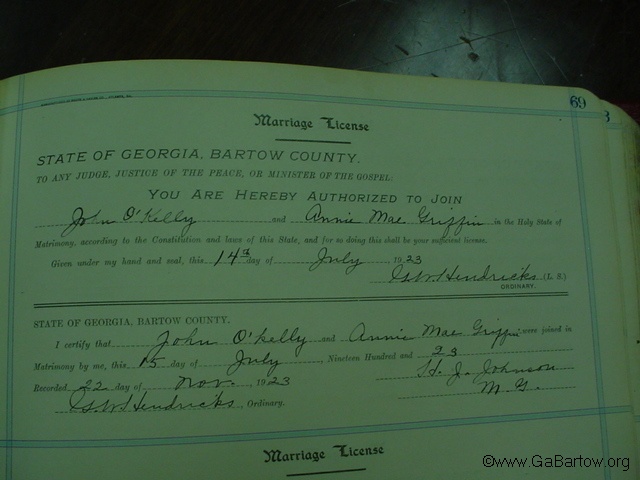 69
Marriage License
STATE OF GEORGIA, BARTOW COUNTY.
TO ANY JUDGE, JUSTICE OF THE PEACE, OR MINISTER OF THE GOSPEL:
YOU ARE HEREBY AUTHORIZED TO JOIN
John O'Kelly and Annie Mae Griffin in the Holy State of
Matrimony, according to the Constitution and laws of this State, and for so doing this shall be your sufficient license.
Given under my hand and seal, this 14th day of July 1923
Hendricks (L. S.)
ORDINARY.
STATE OF GEORGIA, BARTOW COUNTY.
I certify that John O'Kelly and Annie Mae Griffin were joined in
Matrimony by me, this 15 day of July, Nineteen Hundred and 23
Recorded 22 day of Nov. 1923 H. J. Johnson
M. G.
Hendricks, Ordinary.
Marriage License
©www.GaBartow.org